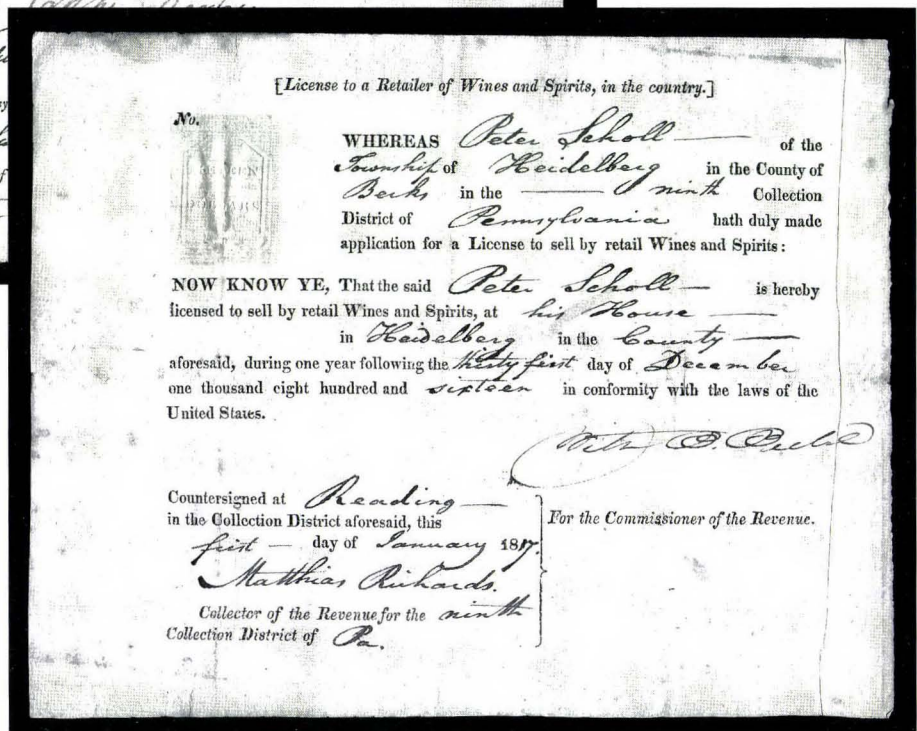 [License to a Retailer of Wines and Spirits, in the country.]
No.
WHEREAS Peter Scholl — of the
Township of Heidelberg in the County of
Berks in the — ninth Collection
District of Pennsylvania hath duly made
application for a License to sell by retail Wines and Spirits:
NOW KNOW YE, That the said Peter Scholl — is hereby
licensed to sell by retail Wines and Spirits, at his House —
in Heidelberg in the County —
aforesaid, during one year following the thirty first day of December
one thousand eight hundred and sixteen in conformity with the laws of the
United States.
Countersigned at Reading —
in the Collection District aforesaid, this
first — day of January 1817.
Matthias Richards.
Collector of the Revenue for the ninth
Collection District of Pa.
For the Commissioner of the Revenue.